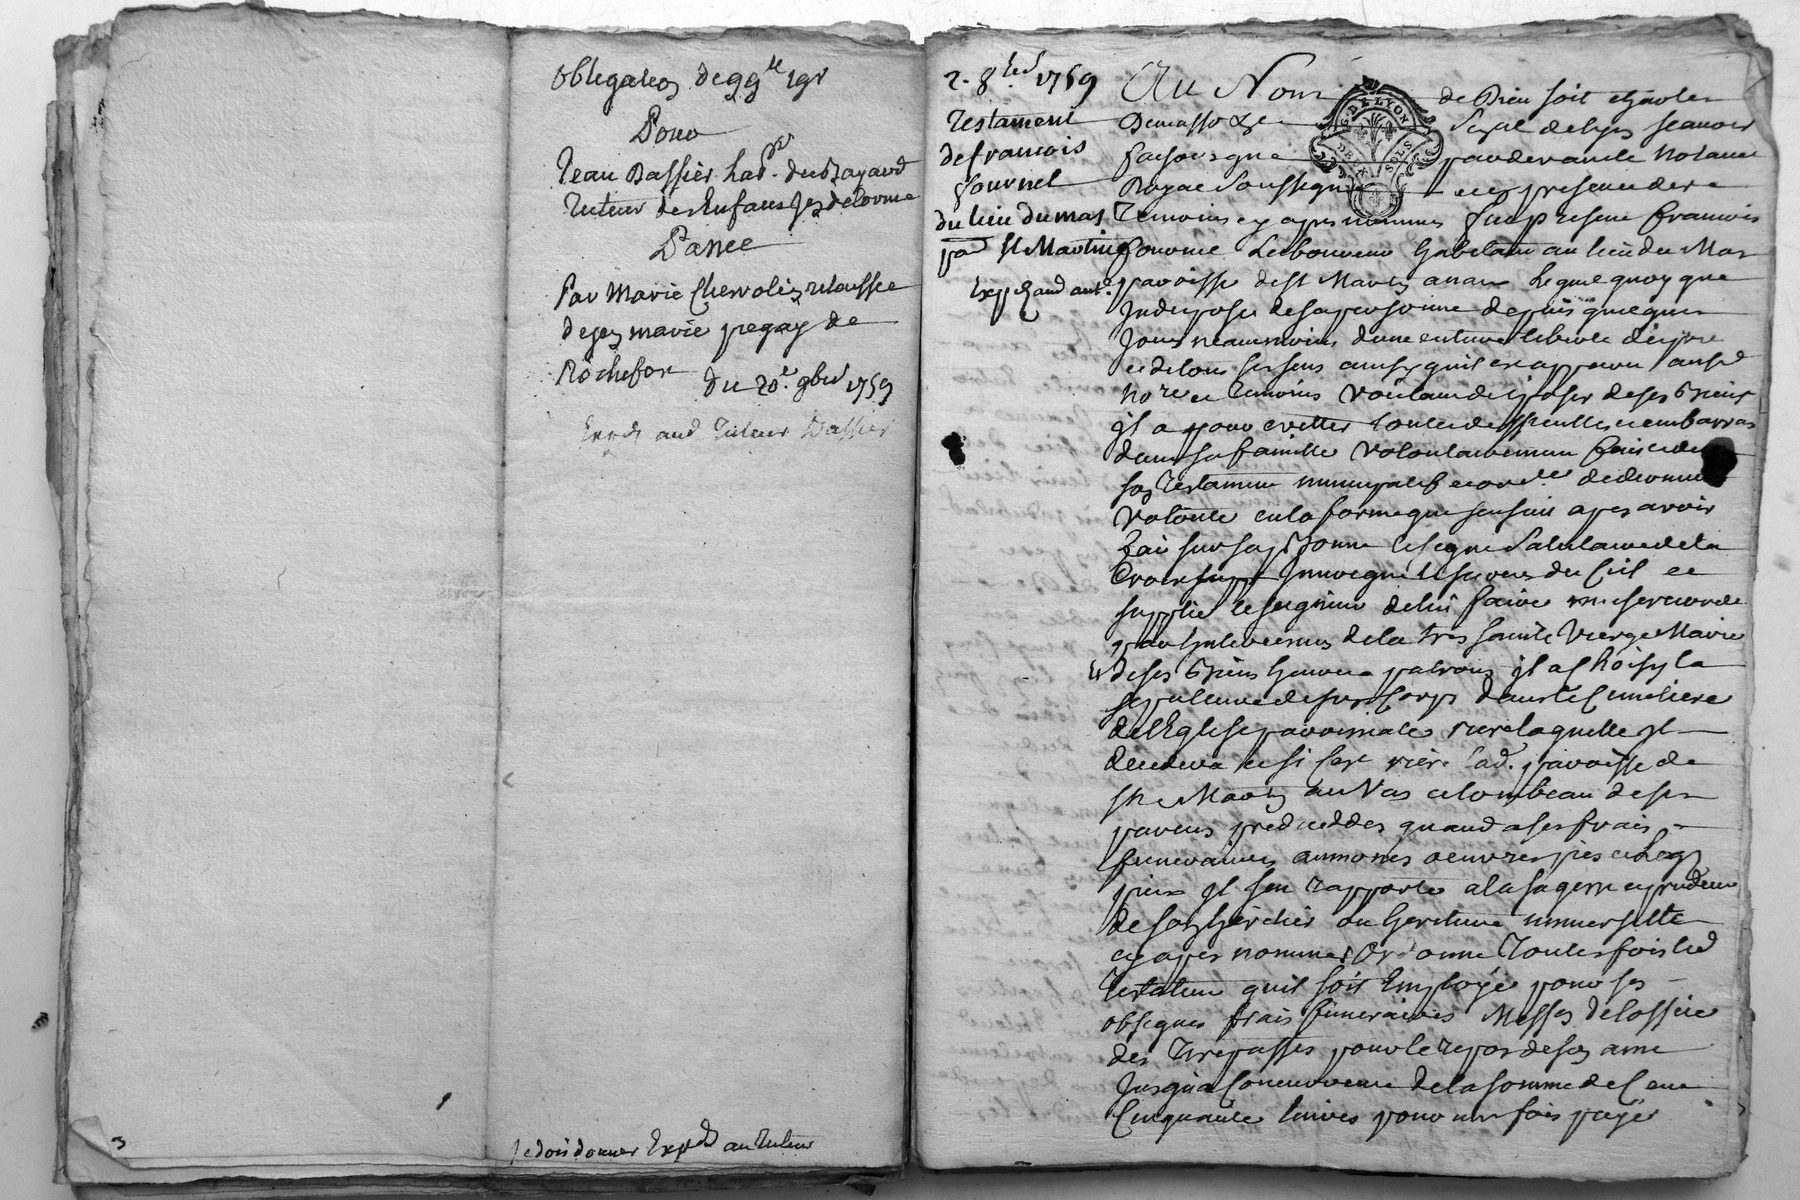 obligation de 99lt 19s
Pour
Jean Dassier hab. du Bayard
Tuteur des Enfans Jean delorme
Passée
Par Marie Chervolin relaissée
de jean marie pegay de
Rochefort du 20e 9bre 1759
Expedié aud Tuteur Dassier
Je dois donner Exped. au Tuteur
2. 8bre 1759
Testament
de francois
fournel
du lieu du mas
par St Martin
Exp. Quand aut.
Au Nom de Dieu soit
Royal Soussigné et en presence des
Temoins cy apres nommes fut present francois
Laboureur habitant au lieu du Mas
paroisse de St Martin Lequel quoy que
Indispose de sa personne depuis quelques
Jours neanmoins dune entiere liberte desprit
et de tous ses sens ainsy quil est apparu aud
nore et Temoins Voulant disposer de ses Biens
Il a pour evitter toutte difficulte et embarras
dans sa famille Volontairement fait
son Testament nuncupatif et ord.re de derniere
Volonté en la forme que sensuit apres avoir
fait sur sa personne le signe Salutaire de la
Croix Invoqué le secours du Ciel et
supplié le seigneur de luy faire misericorde
par Intercession de la tres sainte Vierge Marie
et de ses Bien heureux patrons Il a choisy la
sepulture de son Corps dans le Cimetiere
de lEglise parroissiale riere laquelle Il
decedera et si cest riere lad. paroisse de
St Martin au Vas et tombeau de ses
parens predecedes quand a ses frais
funeraires aumones oeuvres pies et legs
pieux Il sen rapporte a la sagesse et prudence
de son heritier ou heritiere universelle
cy apres nommes Ordonne Toutes fois led
Testateur quil soit Employé pour ses
obseques frais funeraires Messes de loffice
des Trepasses pour le repos de son ame
Jusqua Concurrence de la somme de Cent
Cinquante livres pour une fois payer